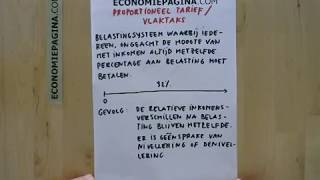 ECONOMIEPAGINA.COM
PROPORTIONEEL TARIEF/
VLAKTAKS
BELASTINGSYSTEEM WAARBIJ IEDE-
REEN, ONGEACHT DE HOOGTE VAN
HET INKOMEN ALTIJD HETZELFDE
PERCENTAGE AAN BELASTING MOET
BETALEN.
32%
0
GEVOLG: DE RELATIEVE INKOMENS-
VERSCHILLEN NA BELA-
STING BLIJVEN HETZELFDE.
ER IS GEEN SPRAKE VAN
NIVELLERING OF DENIVEL-
LERING